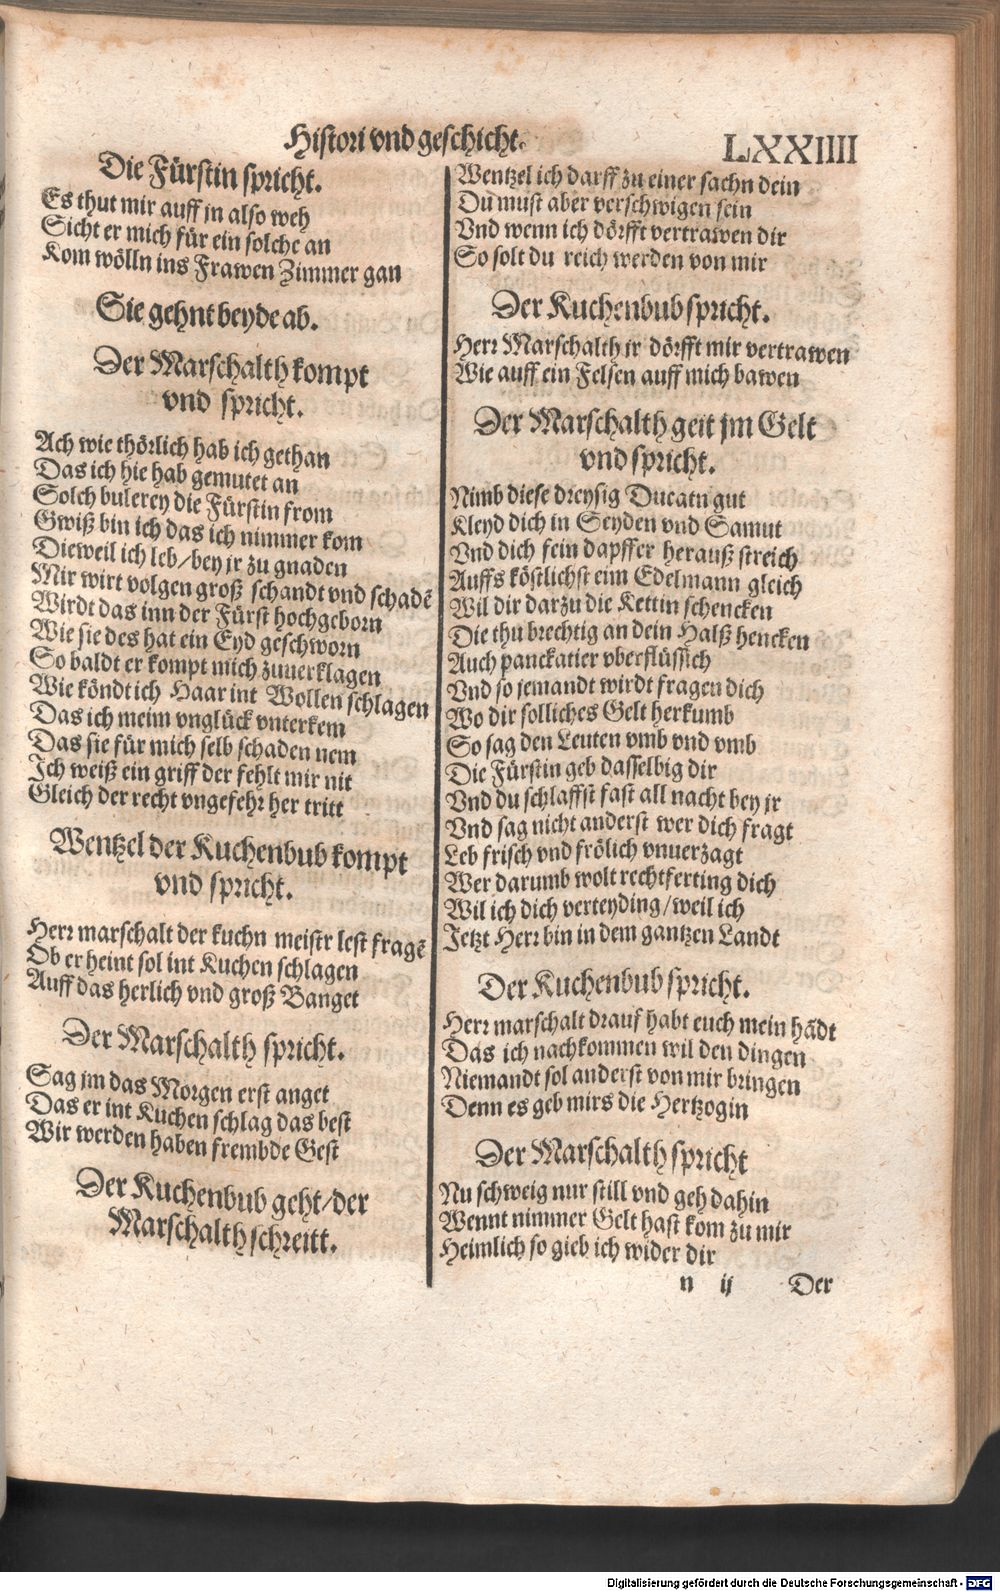 Histori vnd geschicht.
LXXIIII
Die Fürstin spricht.
Es thut mir auff jn also weh
Sicht er mich für ein solche an
Kom wölln ins Frawen Zimmer gan
Sie gehnt beyde ab.
Der Marschalth kompt
vnd spricht.
Ach wie thörlich hab ich gethan
Das ich hie hab gemutet an
Solch bulerey die Fürstin from
Gwiß bin ich das ich nimmer kom
Dieweil ich leb/bey jr zu gnaden
Mir wirt volgen groß schandt vnd schadē
Wirdt das inn der Fürst hochgeborn
Wie sie des hat ein Eyd geschworn
So baldt er kompt mich zuuerklagen
Wie köndt ich Haar int Wollen schlagen
Das ich meim vnglück vnterkem
Das sie für mich selb schaden nem
Ich weiß ein griff der fehlt mir nit
Gleich der recht vngefehr her tritt
Wentzel der Kuchenbub kompt
vnd spricht.
Herr marschalt der kuchn meistr lest fragē
Ob er heint sol int Kuchen schlagen
Auff das herlich vnd groß Banget
Der Marschalth spricht.
Sag jm das Morgen erst anget
Das er int Kuchen schlag das best
Wir werden haben frembde Gest
Der Kuchenbub geht/der
Marschalth schreitt.
Wentzel ich darff zu einer sachn dein
Du must aber verschwigen sein
Vnd wenn ich dörfft vertrawen dir
So solt du reich werden von mir
Der Kuchenbub spricht.
Herr Marschalth jr dörfft mir vertrawen
Wie auff ein Felsen auff mich bawen
Der Marschalth geit jm Gelt
vnd spricht.
Nimb diese dreysig Ducatn gut
Kleyd dich in Seyden vnd Samut
Vnd dich fein dapffer herauß streich
Auffs köstlichst eim Edelmann gleich
Wil dir darzu die Kettin schencken
Die thu brechtig an dein Halß hencken
Auch panckatier vberflüssich
Vnd so jemandt wirdt fragen dich
Wo dir solliches Gelt herkumb
So sag den Leuten vmb vnd vmb
Die Fürstin geb dasselbig dir
Vnd du schlaffst fast all nacht bey jr
Vnd sag nicht anderst wer dich fragt
Leb frisch vnd frölich vnuerzagt
Wer darumb wolt rechtferting dich
Wil ich dich verteyding/weil ich
Jetzt Herr bin in dem gantzen Landt
Der Kuchenbub spricht.
Herr marschalt drauf habt euch mein hādt
Das ich nachkommen wil den dingen
Niemandt sol anderst von mir bringen
Denn es geb mirs die Hertzogin
Der Marschalth spricht
Nu schweig nur still vnd geh dahin
Wennt nimmer Gelt hast kom zu mir
Heimlich so gieb ich wider dir
n ij Der
Digitalisierung gefördert durch die Deutsche Forschungsgemeinschaft - DFG